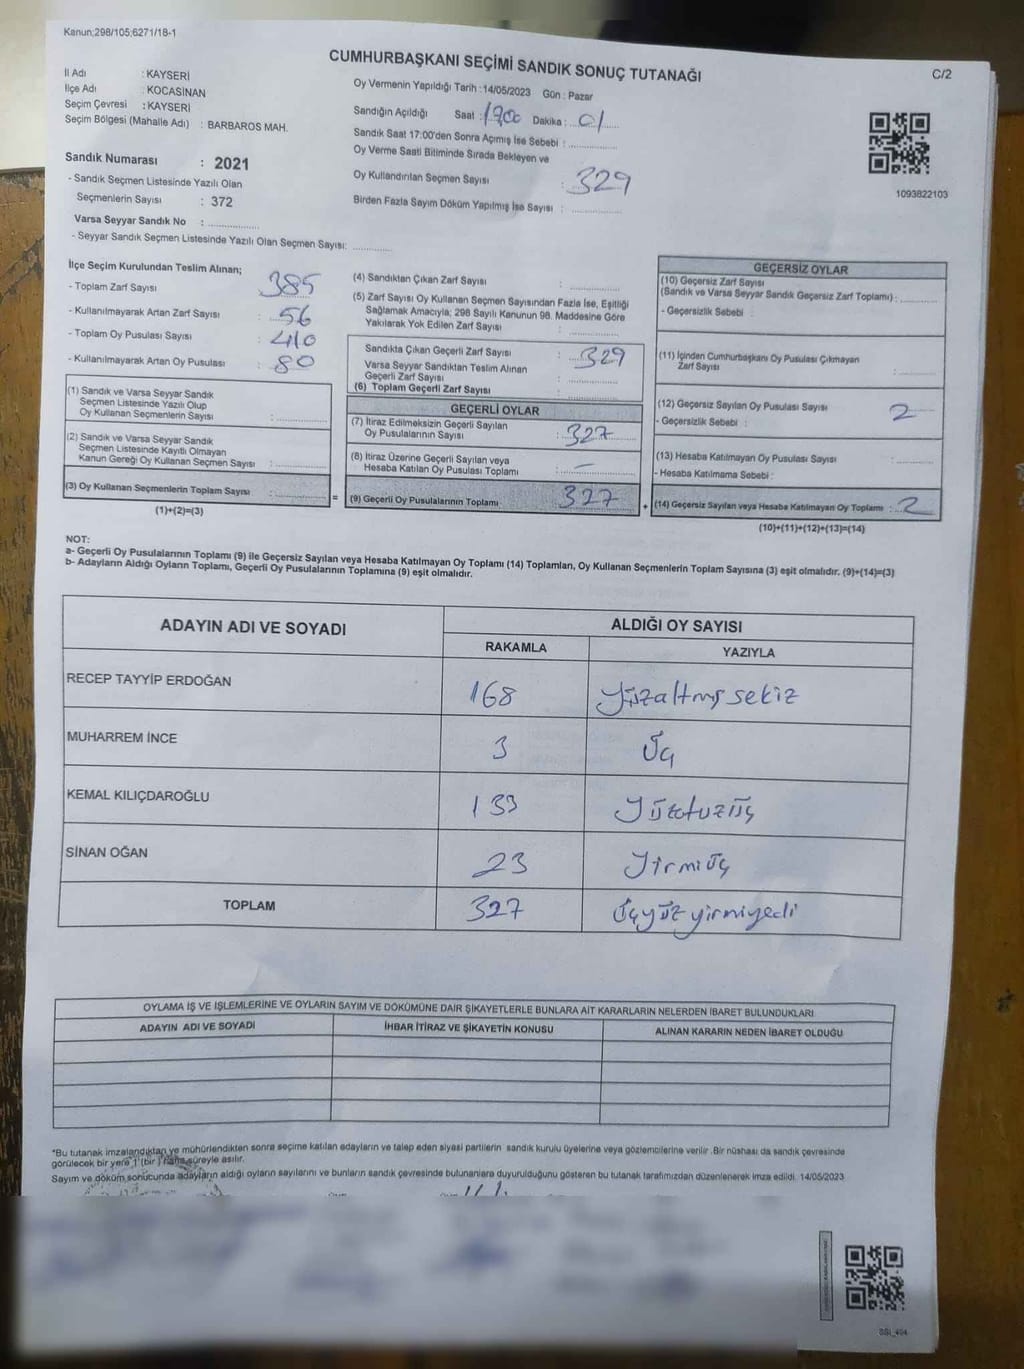 Kanun;298/105;6271/18-1
CUMHURBAŞKANI SEÇİMİ SANDIK SONUÇ TUTANAĞI
C/2
İl Adı : KAYSERİ
İlçe Adı : KOCASİNAN
Seçim Çevresi : KAYSERİ
Seçim Bölgesi (Mahalle Adı) : BARBAROS MAH.
Sandık Numarası : 2021
- Sandık Seçmen Listesinde Yazılı Olan
Seçmenlerin Sayısı : 372
Varsa Seyyar Sandık No :
- Seyyar Sandık Seçmen Listesinde Yazılı Olan Seçmen Sayısı:
Oy Vermenin Yapıldığı Tarih : 14/05/2023 Gün : Pazar
Sandığın Açıldığı Saat : Dakika : 01
Sandık Saat 17:00'den Sonra Açımış İse Sebebi :
Oy Verme Saati Bitiminde Sırada Bekleyen ve
Oy Kullandırılan Seçmen Sayısı : 329
Birden Fazla Sayım Döküm Yapılmış İse Sayısı :
1093822103
İlçe Seçim Kurulundan Teslim Alınan;
- Toplam Zarf Sayısı : 385
- Kullanılmayarak Artan Zarf Sayısı : 56
- Toplam Oy Pusulası Sayısı : 410
- Kullanılmayarak Artan Oy Pusulası : 80
(1) Sandık ve Varsa Seyyar Sandık
Seçmen Listesinde Yazılı Olup
Oy Kullanan Seçmenlerin Sayısı :
(2) Sandık ve Varsa Seyyar Sandık
Seçmen Listesinde Kayıtlı Olmayan
Kanun Gereği Oy Kullanan Seçmen Sayısı :
(3) Oy Kullanan Seçmenlerin Toplam Sayısı :
(1)+(2)=(3)
(4) Sandıktan Çıkan Zarf Sayısı :
(5) Zarf Sayısı Oy Kullanan Seçmen Sayısından Fazla İse, Eşitliği
Sağlamak Amacıyla; 298 Sayılı Kanunun 98. Maddesine Göre
Yakılarak Yok Edilen Zarf Sayısı :
Sandıkta Çıkan Geçerli Zarf Sayısı : 329
Varsa Seyyar Sandıktan Teslim Alınan
Geçerli Zarf Sayısı :
(6) Toplam Geçerli Zarf Sayısı :
GEÇERLİ OYLAR
(7) İtiraz Edilmeksizin Geçerli Sayılan
Oy Pusulalarının Sayısı : 327
(8) İtiraz Üzerine Geçerli Sayılan veya
Hesaba Katılan Oy Pusulası Toplamı : —
= (9) Geçerli Oy Pusulalarının Toplamı : 327
GEÇERSİZ OYLAR
(10) Geçersiz Zarf Sayısı
(Sandık ve Varsa Seyyar Sandık Geçersiz Zarf Toplamı) :
- Geçersizlik Sebebi :
(11) İçinden Cumhurbaşkanı Oy Pusulası Çıkmayan
Zarf Sayısı :
(12) Geçersiz Sayılan Oy Pusulası Sayısı : 2
- Geçersizlik Sebebi :
(13) Hesaba Katılmayan Oy Pusulası Sayısı :
- Hesaba Katılmama Sebebi :
+ (14) Geçersiz Sayılan veya Hesaba Katılmayan Oy Toplamı : 2
(10)+(11)+(12)+(13)=(14)
NOT:
a- Geçerli Oy Pusulalarının Toplamı (9) ile Geçersiz Sayılan veya Hesaba Katılmayan Oy Toplamı (14) Toplamları, Oy Kullanan Seçmenlerin Toplam Sayısına (3) eşit olmalıdır. (9)+(14)=(3)
b- Adayların Aldığı Oyların Toplamı, Geçerli Oy Pusulalarının Toplamına (9) eşit olmalıdır.
ADAYIN ADI VE SOYADI
ALDIĞI OY SAYISI
RAKAMLA YAZIYLA
RECEP TAYYİP ERDOĞAN 168 Yüzaltmış sekiz
MUHARREM İNCE 3 Üç
KEMAL KILIÇDAROĞLU 133 Yüzotuzüç
SİNAN OĞAN 23 Yirmi üç
TOPLAM 327 Üçyüz yirmiyedi
OYLAMA İŞ VE İŞLEMLERİNE VE OYLARIN SAYIM VE DÖKÜMÜNE DAİR ŞİKAYETLERLE BUNLARA AİT KARARLARIN NELERDEN İBARET BULUNDUKLARI
ADAYIN ADI VE SOYADI İHBAR İTİRAZ VE ŞİKAYETİN KONUSU ALINAN KARARIN NEDEN İBARET OLDUĞU
*Bu tutanak imzalandıktan ve mühürlendikten sonra seçime katılan adayların ve talep eden siyasi partilerin sandık kurulu üyelerine veya gözlemcilerine verilir .Bir nüshası da sandık çevresinde
görülecek bir yere 1 (bir ) hafta süreyle asılır.
Sayım ve döküm sonucunda adayların aldığı oyların sayılarını ve bunların sandık çevresinde bulunanlara duyurulduğunu gösteren bu tutanak tarafımızdan düzenlenerek imza edildi. 14/05/2023